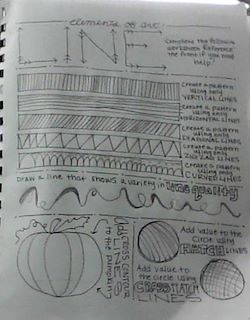 elements of art:
LINE
Complete the following
worksheet. Reference
the front if you need
help!
Create a pattern
using only
VERTICAL LINES
Create a pattern
using only
HORIZONTAL LINES
Create a pattern
using only
DIAGONAL LINES
Create a pattern
using only
ZIGZAG LINES
Create a pattern
using only
CURVED LINES
Draw a line that shows a variety in line quality
Add CROSS CONTOUR
LINES
to the pumpkin
Add value to the
circle using
HATCH LINES
Add value to
the circle using
CROSSHATCH
LINES